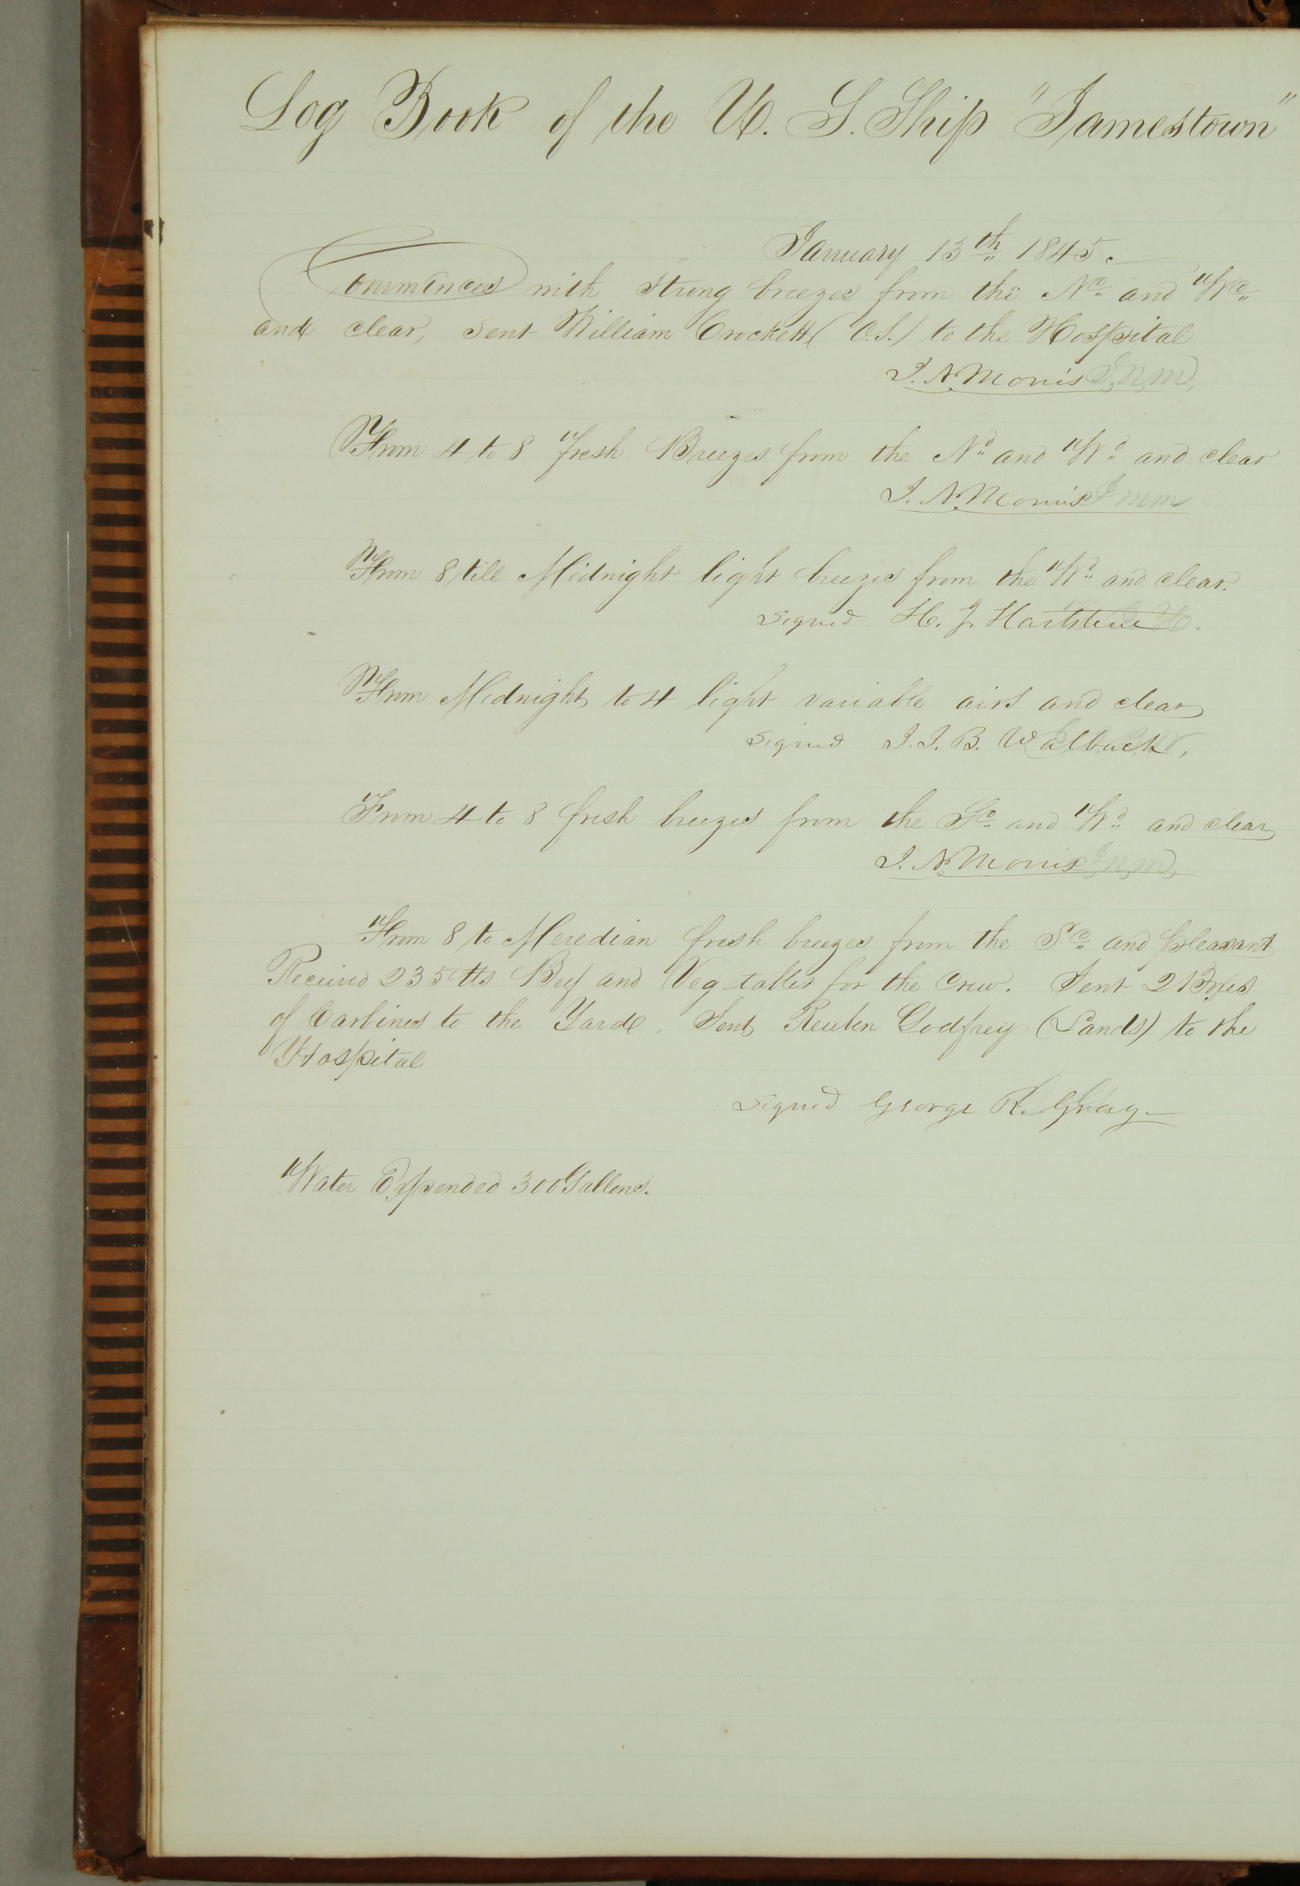 Log Book of the U. S. Ship "Jamestown"
January 13th 1845.
Commences with strong breezes from the Nd and Wd
and clear, Sent William Crockett (O.S.) to the Hospital
I. N. Morris
From 4 to 8 fresh Breezes from the Nd and Wd and clear
I. N. Morris
From 8 till Midnight light breezes from the Wd and clear.
Signed H. J. Hartstene
From Midnight to 4 light variable airs and clear
Signed J. J. B. Walbach
From 4 to 8 fresh breezes from the Sd and Wd and clear
I. N. Morris
From 8 to Meredian fresh breezes from the Sd and pleasant
Received 235 lbs Beef and Vegetables for the Crew. Sent 2 Boxes
of Carbines to the Yard. Sent Reuben Godfrey (Lands) to the
Hospital
Signed George R. Gray
Water Expended 300 Gallons.